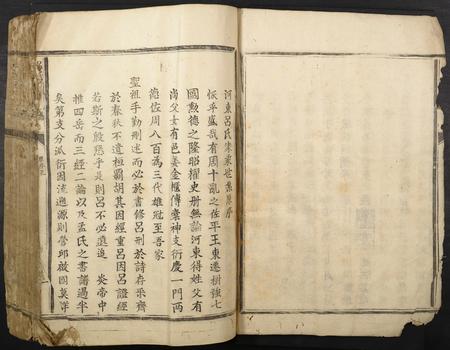 河東呂氏宗家世系原序
恢乎盛哉有周十亂之佐平王東遷樹強七
國勲德之隆昭耀史册無論河東得姓父有
尚父女有邑姜金櫃傳棠神支衍慶一門兩
德佐周八百為三代雄冠至吾家
聖祖手勤刪述而必於書修呂刑於詩存采齊
於春秋不遺桓霸胡其因經重呂因呂證經
若斯之殷懇乎是則呂不必遠追 炎帝中
推四岳而三經二論以及孟氏之書譜過半
矣第支分派衍因流遡源則營邱啟國莫詳